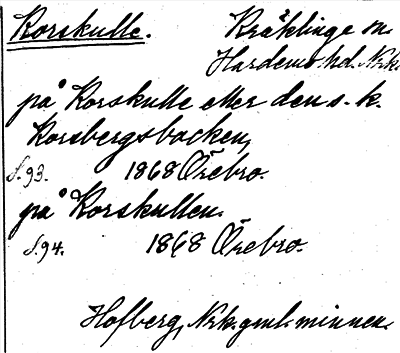 Korskulle.
Kräklinge sn.
Hardemo hd. Nrk.
på Korskulle eller den s. k.
Korsbergsbacken,
S. 93. 1868 Örebro.
på Korskullen.
S. 94. 1868 Örebro.
Hofberg, Nrk. gml. minnen.